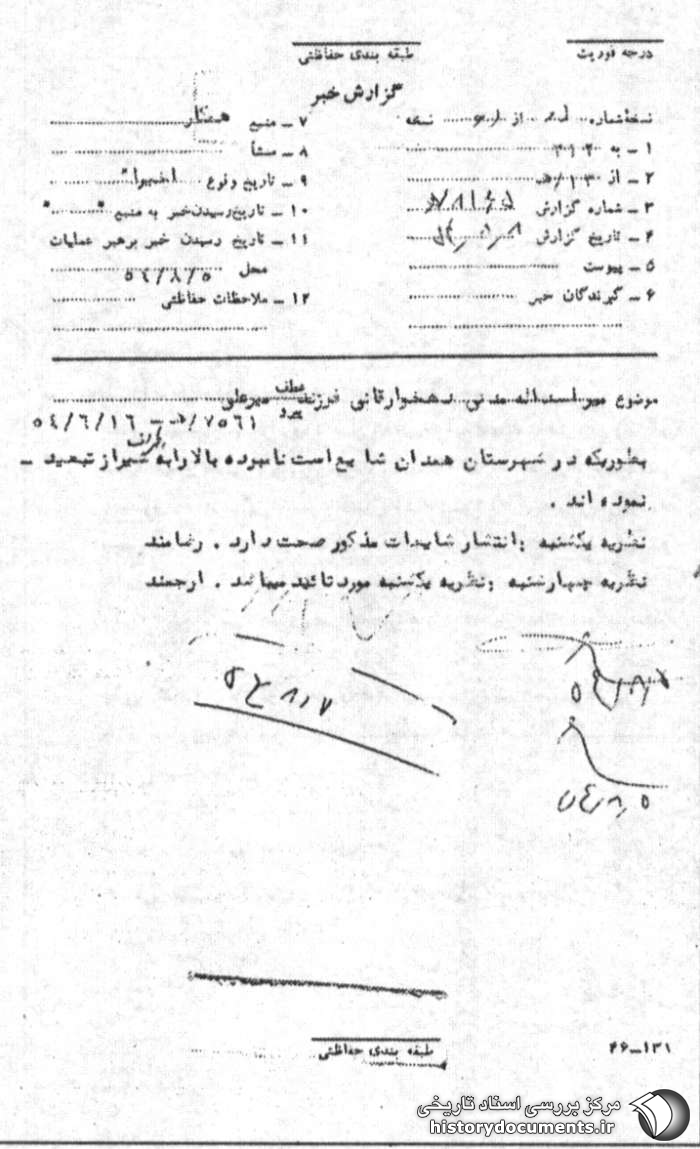 درجه فوریت
طبقه بندی حفاظتی
گزارش خبر
نسخهٔ شماره از نسخه
۱ ــ به ۳۱۲
۲ ــ از
۳ ــ شماره گزارش
۴ ــ تاریخ گزارش
۵ ــ پیوست
۶ ــ گیرندگان خبر
۷ ــ منبع
۸ ــ منشأ
۹ ــ تاریخ وقوع اخیرا"
۱۰ ــ تاریخ رسیدن خبر به منبع " "
۱۱ ــ تاریخ رسیدن خبر برهبر عملیات
محل ۵٤/۸/۵
۱۲ ــ ملاحظات حفاظتی
موضوع میر اسداله مدنی دهخوارقانی فرزند میرعلی
عطف
پیرو
۷۵٦۱/ه‍ ــ ۵٤/٦/۱٦
بطوریکه در شهرستان همدان شایع است نامبرده بالا را به شیراز تبعید ــ
نموده اند .
نظریه یکشنبه : انتشار شایعات مذکور صحت دارد . رضامند
نظریه چهارشنبه : نظریه یکشنبه مورد تائید میباشد . ارجمند
۵٤٫۸٫۷
۵٤٫۸٫۵
طبقه بندی حفاظتی
۱۳۱ــ۴۶
مرکز بررسی اسناد تاریخی
historydocuments.ir